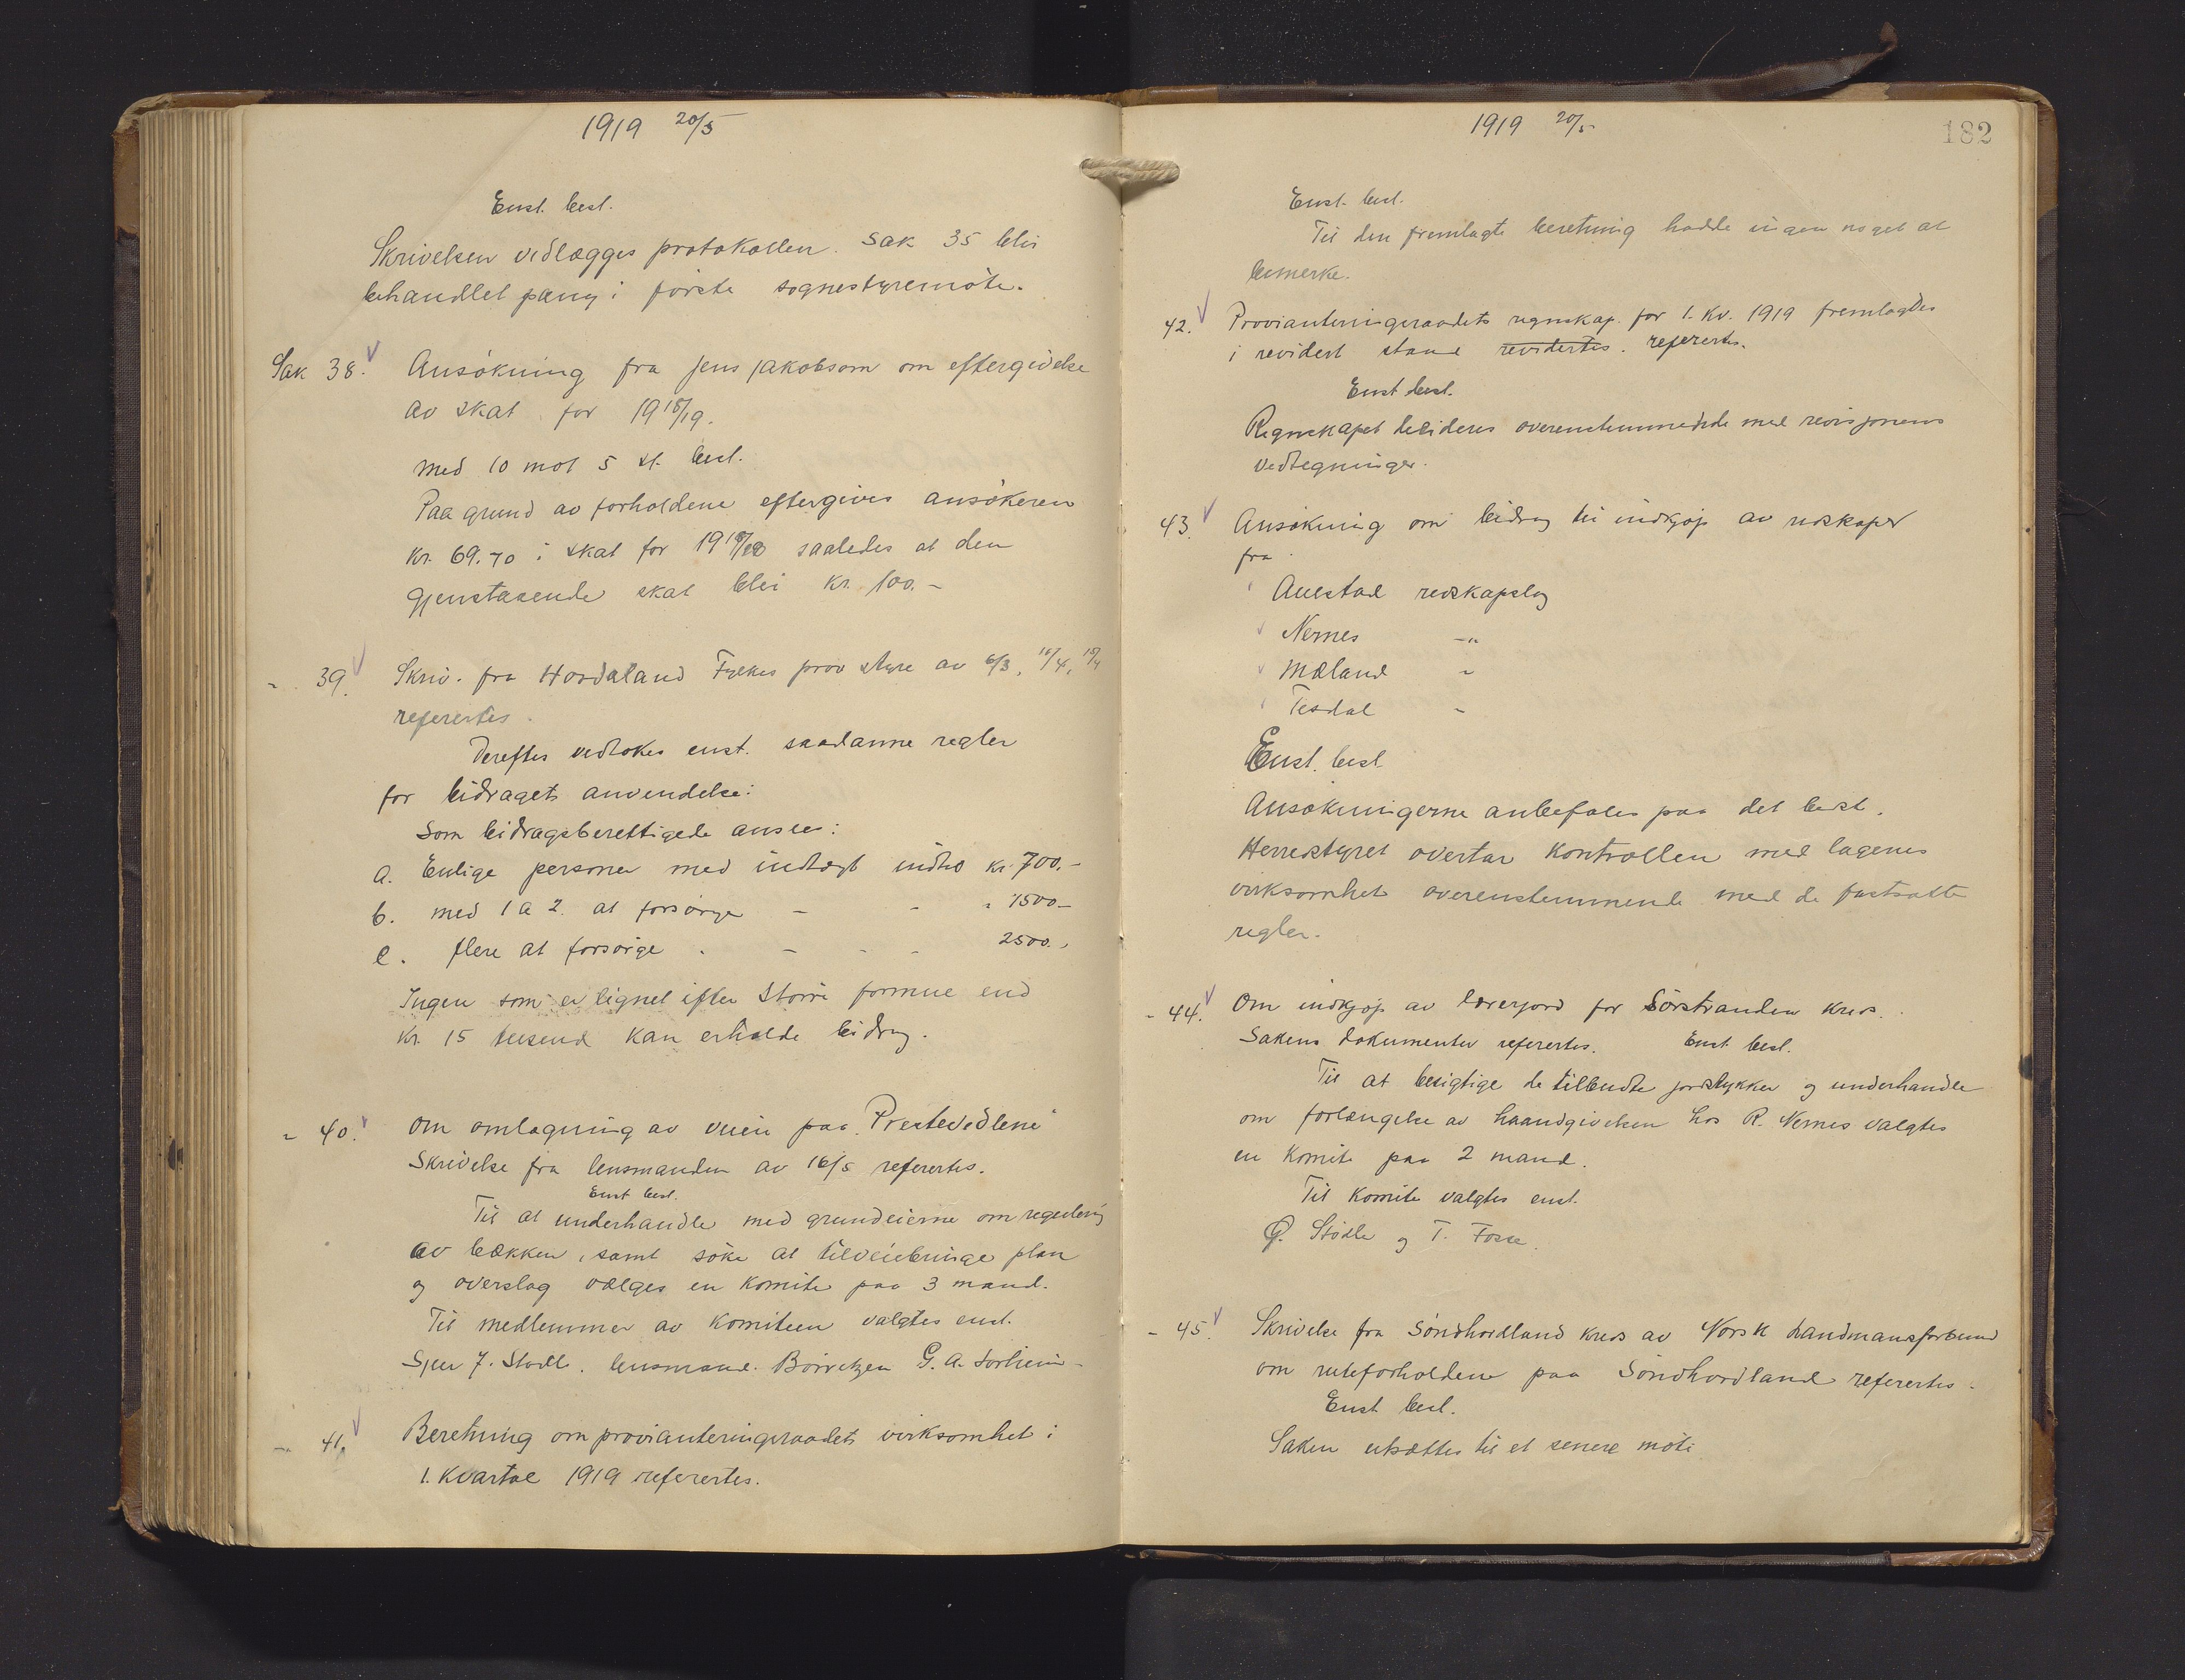 1919 20/5
Enst. besl.
Skrivelsen vedlægges protokollen. Sak 35 blir
behandlet paany i første sognestyremöte.
Sak 38. Ansökning fra Jens Jakobsen om eftergivelse
av skat for 1918/19.
Med 10 mot 5 st. besl.
Paa grund av forholdene eftergives ansökeren
kr. 69.70 i skat for 1918/19 saaledes at den
gjenstaaende skat blir kr. 100.-
- 39. Skriv. fra Hordaland Fylkes prov styre av 6/3, 11/4, 15/4
refertes.
Derefter vedtokes enst. saadanne regler
for bidragets anvendelse:
Som bidragsberettigede ansees:
a. Enlige personer med indtægt indtil kr. 700.-
b. med 1 a 2. at forsörge - - " 1500-
c. flere at forsörge . - - - 2500.-
Ingen som er lignet efter större formue end
kr. 15 tusend kan erholde bidrag.
- 40. Om omlægning av veien paa "Prestevedlene"
Skrivelse fra lensmanden av 16/5 refertes.
Enst besl.
Til at underhandle med grundeierne om regulering
av bækken, samt söke at tilveiebringe plan
og overslag vælges en komite paa 3 mand.
Til medlemmer av komiteen valgtes enst.
Sjur J. Stödle. lensmand Börretzen G. A.
- 41. Beretning om provianteringsraadets virksomhet i
1. kvartal 1919 refertes.
1919 20/5
182
Enst. besl.
Til den fremlagte beretning hadde ingen noget at
bemerke.
42. Provianteringsraadets regnskap for 1. kv. 1919 fremlagdes
i revidert stand revidertes. refertes.
Enst besl.
Regnskapet decideres overenstemmende med revisjonens
vedtegninger.
43. Ansökning om bidrag til indkjöp av redskaper
fra
Austad redskapslag
Nernes -"-
Mæland "
Tesdal "
Enst. besl.
Ansökningerne anbefales paa det bedste.
Herredstyret overtar kontrollen med lagenes
virksomhet overenstemmende med de fastsatte
regler.
- 44. Om indkjöp av lærerjord for Sörstranden kreds.
Sakens dokumenter refertes. Enst. besl.
Til at besigtige de tilbudte jordstykker og underhandle
om forlængelse av haandgivelsen hos R. Nernes valgtes
en komite paa 2 mand.
Til komite valgtes enst.
Ø. Stödle og T. Fosse.
- 45. Skrivelse fra Söndhordland kreds av Norsk Landmansforbund
om ruteforholdene paa Söndhordland refertes.
Enst. besl.
Saken utsættes til et senere möte